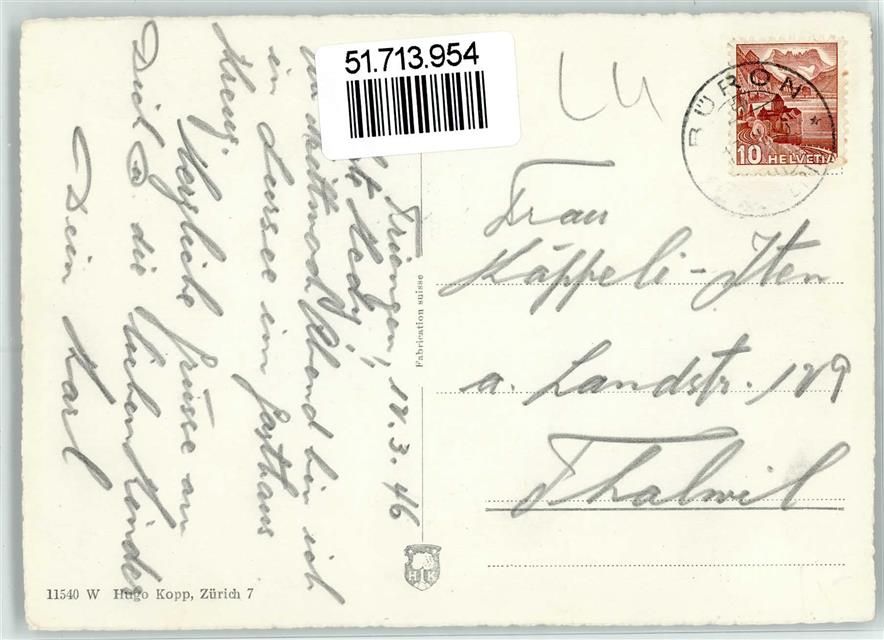 51.713.954
Triengen, 12.3.46
Hedy,
Mittwoch Abend bin ich
in Sursee im Gasthaus
Kreuz.
Herzliche Grüsse an
Dich & die lieben Kinder
Dein Karl
Fabrication suisse
HK
11540 W Hugo Kopp, Zürich 7
LU
BÜRON
10 HELVETIA
Frau
Käppeli-Iten
a. Landstr. 129
Thalwil